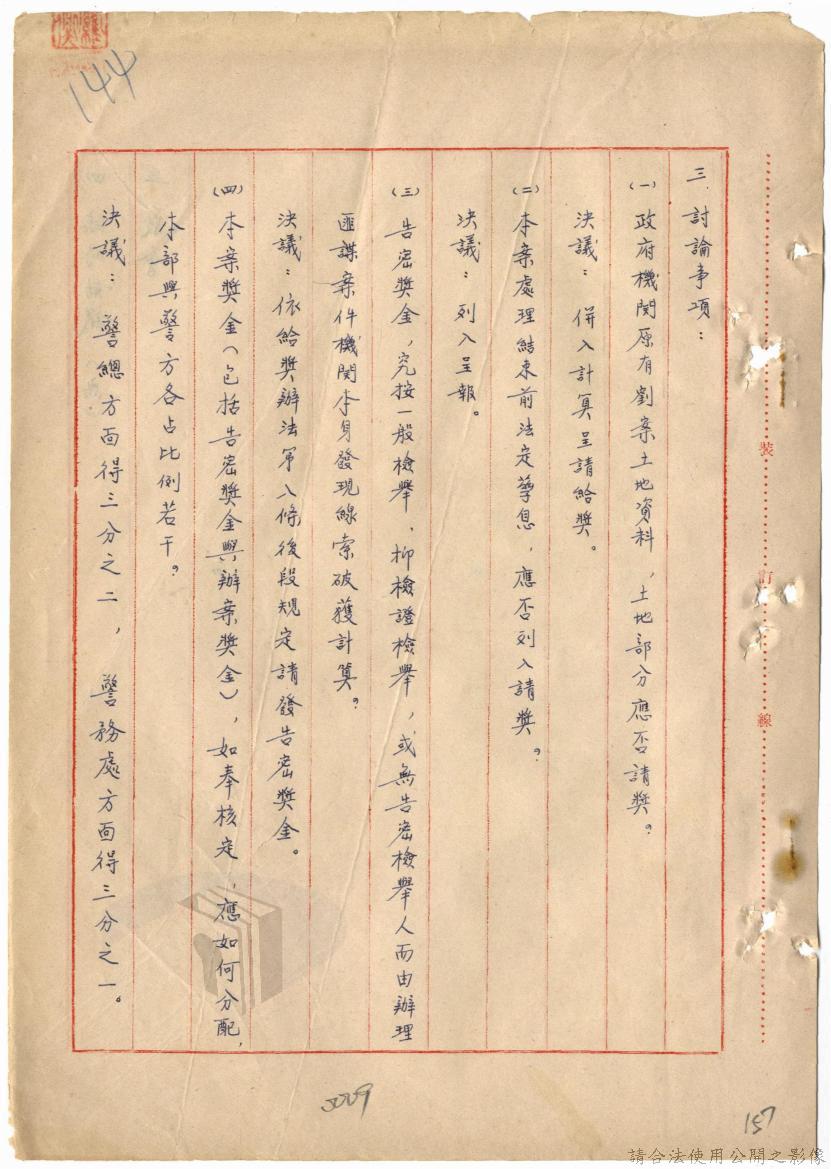 144
三、討論事項：
(一)政府機関原有劉案土地資料，土地部分應否請獎？
決議：併入計算呈請給獎。
(二)本案處理結束前法定孳息，應否列入請獎？
決議：列入呈報。
(三)告密獎金，究按一般檢舉、抑檢證檢舉，或無告密檢舉人而由辦理
匪諜案件機関本身發現線索破獲計算？
決議：依給獎辦法第八條後段規定請發告密獎金。
(四)本案獎金(包括告密獎金與辦案獎金)，如奉核定，應如何分配，
本部與警方各占比例若干？
決議：警總方面得三分之二，警務處方面得三分之一。
裝
訂
線
157
請合法使用公開之影像